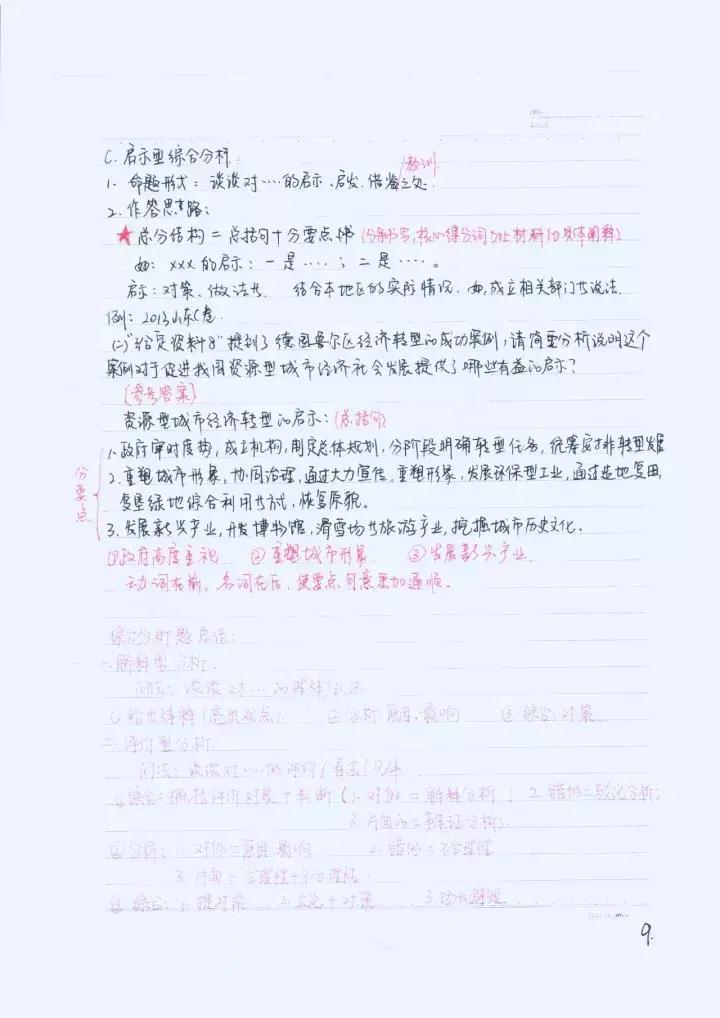 C. 启示型综合分析:
1. 命题形式：谈谈对……的启示、启发、借鉴之处. /教训
2. 作答思路：
★ 总分结构 = 总括句 + 分要点 (分条书写, 核心得分词 + 材料的具体阐释)
如：xxx 的启示：一是……；二是……。
启示：对策、做法等. 结合本地区的实际情况. 如, 成立相关部门等说法.
例：2013山东C卷.
(二)"给定资料8"提到了德国鲁尔区经济转型的成功案例，请简要分析说明这个
案例对于促进我国资源型城市经济社会发展提供了哪些有益的启示？
[参考答案]
资源型城市经济转型的启示：(总括句)
分要点
1. 政府审时度势，成立机构，制定总体规划，分阶段明确转型任务，统筹安排转型发展
2. 重塑城市形象，协同治理，通过大力宣传，重塑形象，发展环保型工业，通过造地复田，
复垦绿地综合利用等方式，恢复原貌。
3. 发展新兴产业，开发博物馆，滑雪场等旅游产业，挖掘城市历史文化.
①政府高度重视 ②重塑城市形象 ③发展新兴产业.
动词在前，名词在后，使要点句意更加通顺。
综合分析题总结：
一. 解释型分析.
问法：谈谈对……的理解/认识
①给出解释(亮出观点). ②分析: 原因、影响 ③综合: 对策.
二. 评价型分析.
问法：谈谈对……的评价/看法/见解
①综合: 概括评价对象+判断 (1. 对的 = 解释分析； 2. 错的 = 驳论分析；
3. 片面的 = 辩证分析).
②分析：1. 对的 = 原因 影响 2. 错的 = 不合理性
3. 片面 = 合理性+不合理性.
③综合：1. 提对策 2. 立论+对策 3.
9.